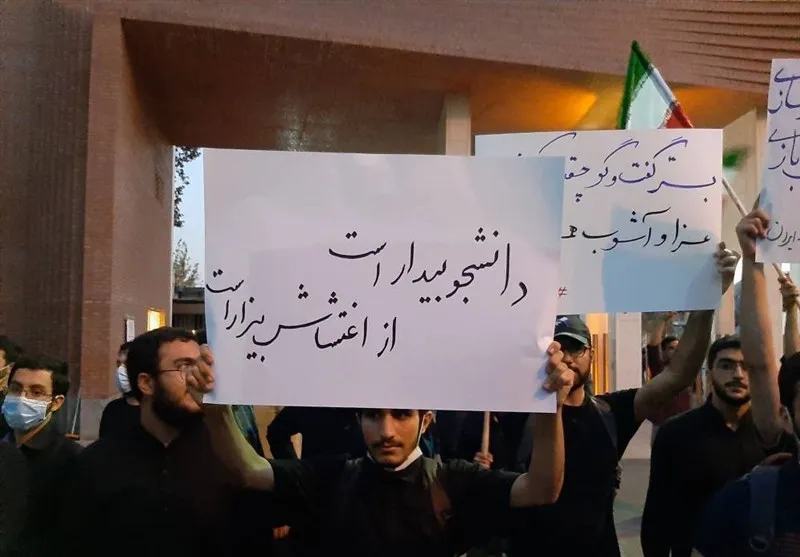 دانشجو بیدار است
از اغتشاش بیزار است
بستر گفت و گو
عزا و آشوب
#
بازی
ایران